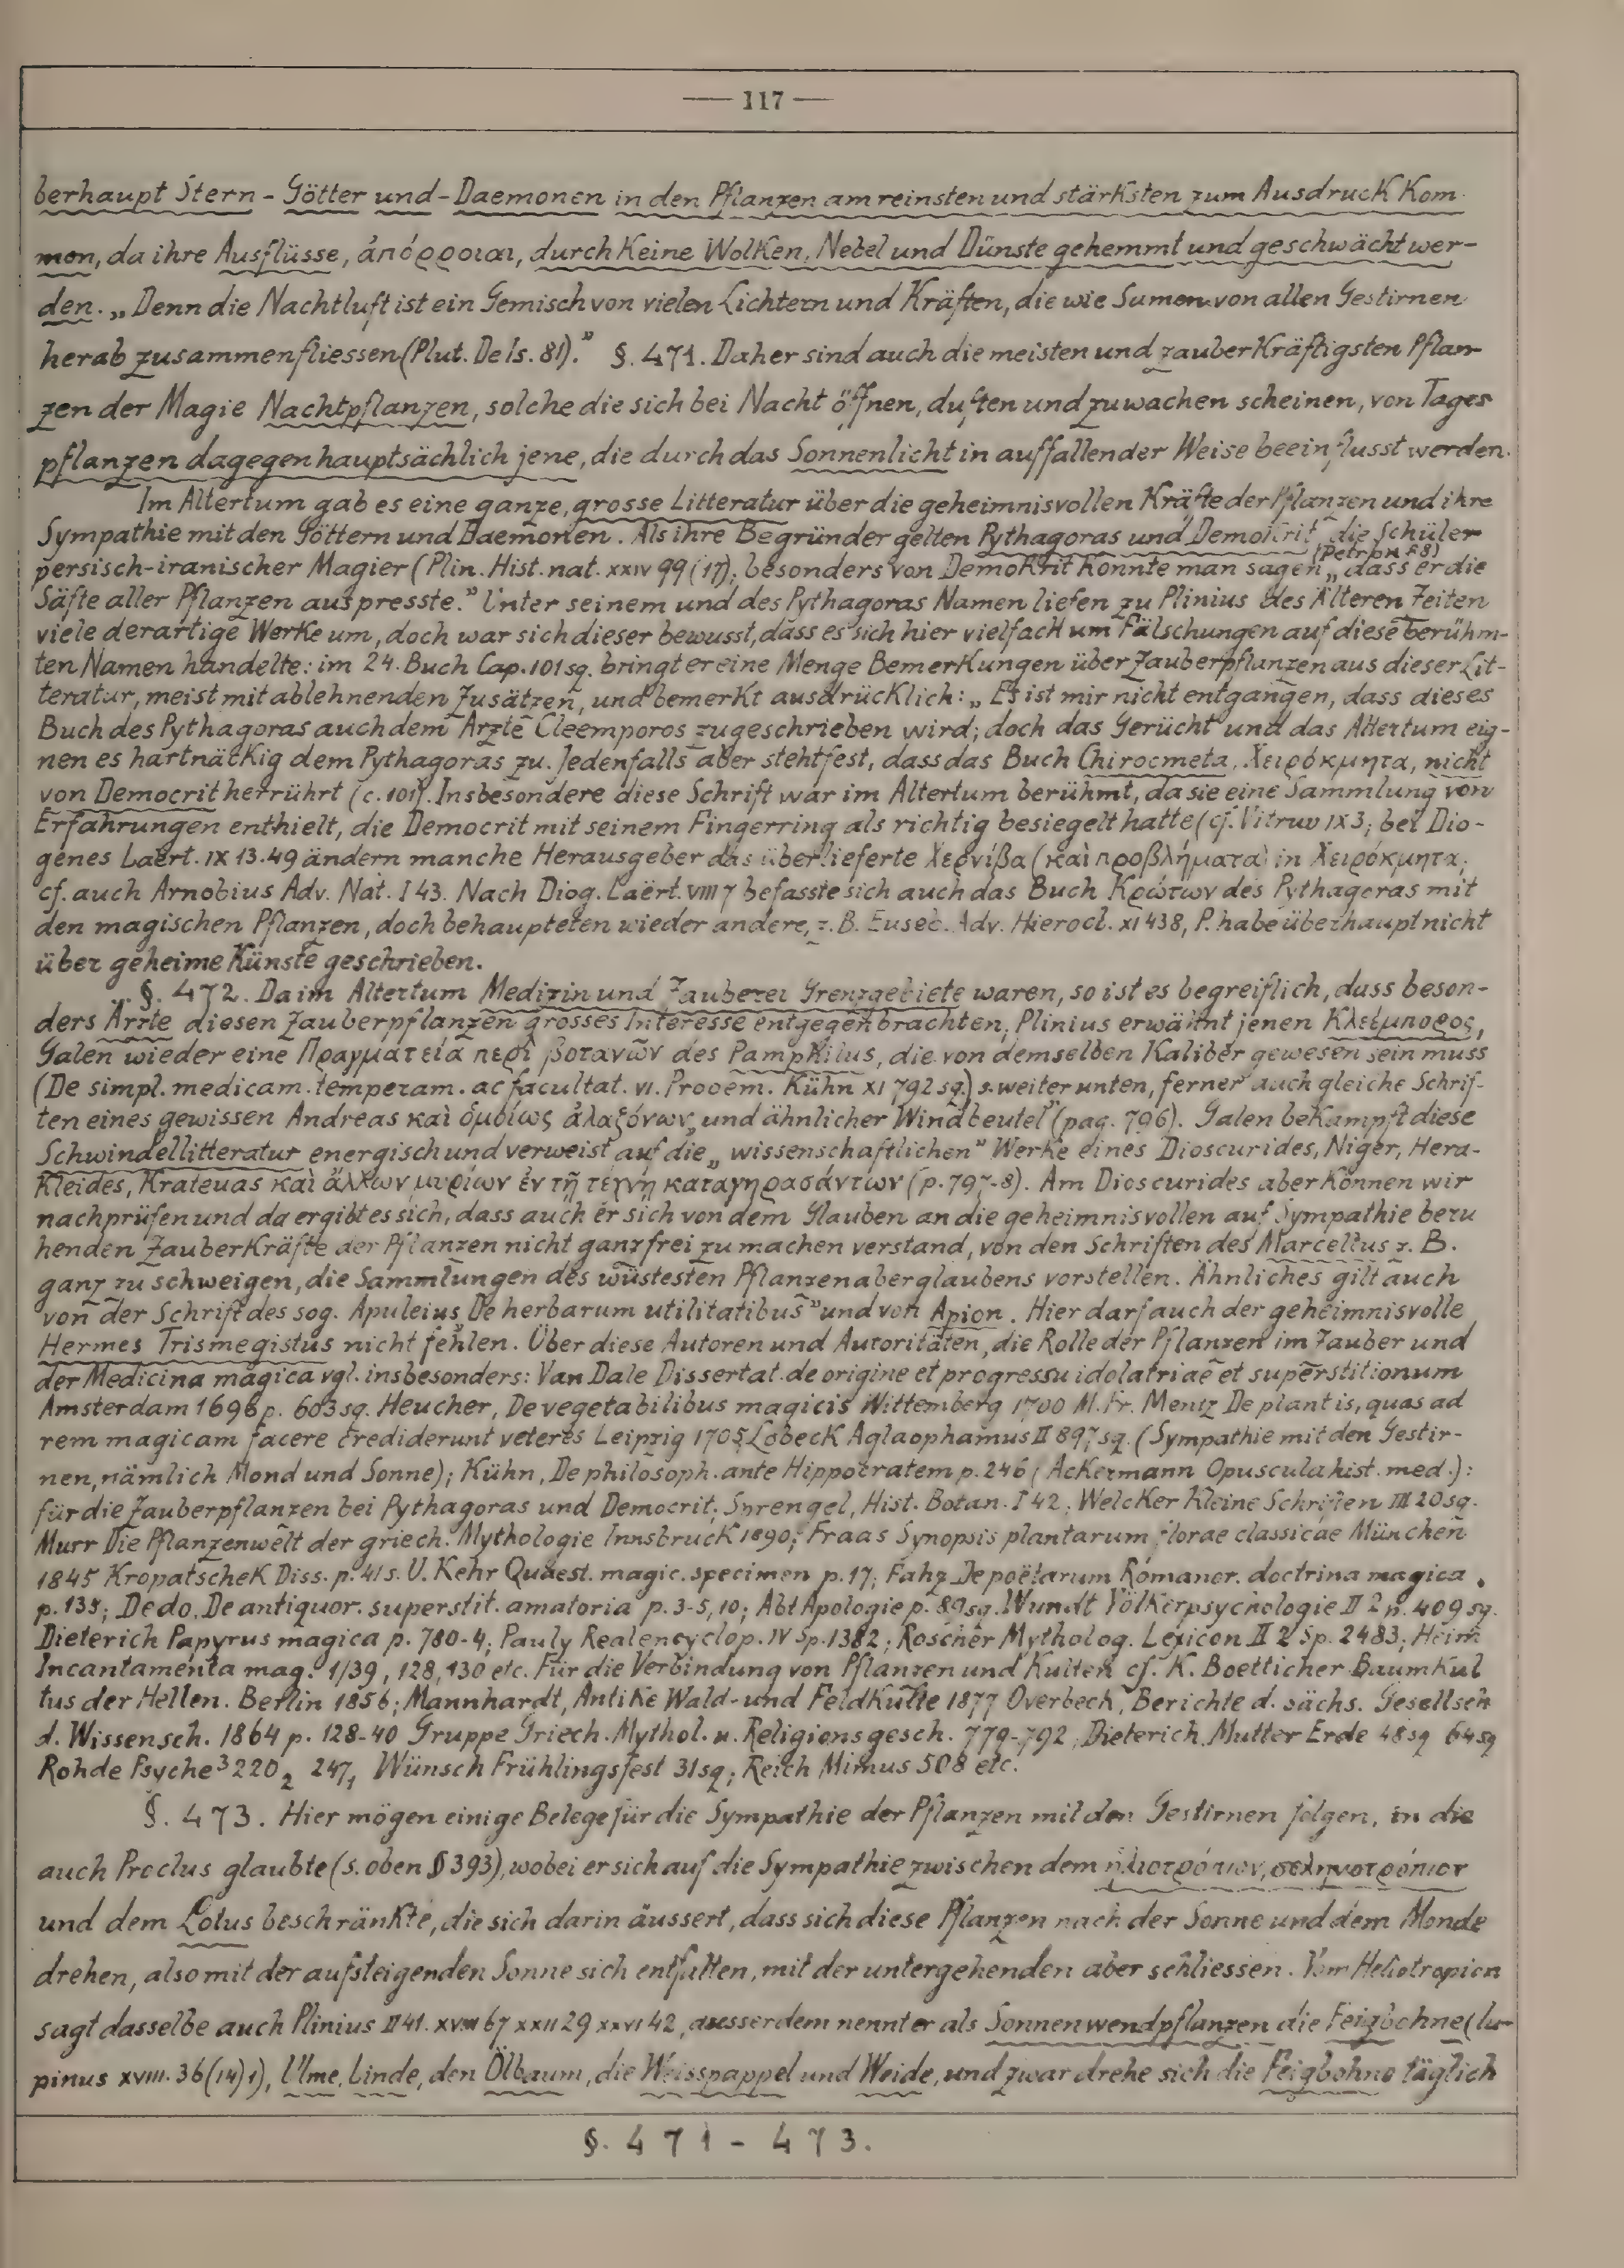 — 117 —
berhaupt Stern-Götter und-Daemonen in den Pflanzen am reinsten und stärksten zum Ausdruck kom
men, da ihre Ausflüsse, ἀπόρροιαι, durch keine Wolken, Nebel und Dünste gehemmt und geschwächt wer-
den. „Denn die Nachtluft ist ein Gemisch von vielen Lichtern und Kräften, die wie Samen von allen Gestirnen
herab zusammenfliessen (Plut. De Is. 81).” §. 471. Daher sind auch die meisten und zauberkräftigsten Pflan-
zen der Magie Nachtpflanzen, solche die sich bei Nacht öffnen, duften und zu wachen scheinen, von Tages
pflanzen dagegen hauptsächlich jene, die durch das Sonnenlicht in auffallender Weise beeinflusst werden.
Im Altertum gab es eine ganze, grosse Litteratur über die geheimnisvollen Kräfte der Pflanzen und ihre
Sympathie mit den Göttern und Daemonen. Als ihre Begründer gelten Pythagoras und Demokrit, die Schüler
persisch-iranischer Magier (Plin. Hist. nat. XXIV 99 (17); besonders von Demokrit konnte man sagen (Petron 88) „dass er die
Säfte aller Pflanzen auspresste.” Unter seinem und des Pythagoras Namen liefen zu Plinius des Älteren Zeiten
viele derartige Werke um, doch war sich dieser bewusst, dass es sich hier vielfach um Fälschungen auf diese berühm-
ten Namen handelte: im 24. Buch Cap. 101 sq. bringt er eine Menge Bemerkungen über Zauberpflanzen aus dieser Lit-
teratur, meist mit ablehnenden Zusätzen, und bemerkt ausdrücklich: „Es ist mir nicht entgangen, dass dieses
Buch des Pythagoras auch dem Arzte Cleemporos zugeschrieben wird; doch das Gerücht und das Altertum eig-
nen es hartnäckig dem Pythagoras zu. Jedenfalls aber steht fest, dass das Buch Chirocmeta, Χειρόκμητα, nicht
von Democrit herrührt (c. 101). Insbesondere diese Schrift war im Altertum berühmt, da sie eine Sammlung von
Erfahrungen enthielt, die Democrit mit seinem Fingerring als richtig besiegelt hatte (cf. Vitruv IX 3; bei Dio-
genes Laërt. IX 13.49 ändern manche Herausgeber das überlieferte Χερνίβα (καὶ προβλήματα) in Χειρόκμητα;
cf. auch Arnobius Adv. Nat. I 43. Nach Diog. Laërt. VIII 7 befasste sich auch das Buch Κρώτων des Pythagoras mit
den magischen Pflanzen, doch behaupteten wieder andere, z. B. Euseb. Adv. Hierocl. XI 438, P. habe überhaupt nicht
über geheime Künste geschrieben.
§. 472. Da im Altertum Medizin und Zauberei Grenzgebiete waren, so ist es begreiflich, dass beson-
ders Ärzte diesen Zauberpflanzen grosses Interesse entgegenbrachten; Plinius erwähnt jenen Κλεέμπορος,
Galen wieder eine Πραγματεία περὶ βοτανῶν des Pamphilus, die von demselben Kaliber gewesen sein muss
(De simpl. medicam. temperam. ac facultat. VI. Prooem. Kühn XI 792 sq.) s. weiter unten, ferner auch gleiche Schrif-
ten eines gewissen Andreas καὶ ὁμοίως ἀλαζόνων „und ähnlicher Windbeutel” (pag. 796). Galen bekämpft diese
Schwindellitteratur energisch und verweist auf die „wissenschaftlichen” Werke eines Dioscurides, Niger, Hera-
kleides, Krateuas καὶ ἄλλων μυρίων ἐν τῇ τέχνῃ καταγηρασάντων (p. 797-8). Am Dioscurides aber können wir
nachprüfen und da ergibt es sich, dass auch er sich von dem Glauben an die geheimnisvollen auf Sympathie beru
henden Zauberkräfte der Pflanzen nicht ganz frei zu machen verstand, von den Schriften des Marcellus z. B.
ganz zu schweigen, die Sammlungen des wüstesten Pflanzenaberglaubens vorstellen. Ähnliches gilt auch
von der Schrift des sog. Apuleius „De herbarum utilitatibus” und von Apion. Hier darf auch der geheimnisvolle
Hermes Trismegistus nicht fehlen. Über diese Autoren und Autoritäten, die Rolle der Pflanzen im Zauber und
der Medicina magica vgl. insbesonders: Van Dale Dissertat. de origine et progressu idolatriae et superstitionum
Amsterdam 1696 p. 603 sq. Heucher, De vegetabilibus magicis Wittemberg 1700 M. Fr. Mentz De plantis, quas ad
rem magicam facere crediderunt veteres Leipzig 1705 Lobeck Aglaophamus II 897 sq. (Sympathie mit den Gestir-
nen, nämlich Mond und Sonne); Kühn, De philosoph. ante Hippocratem p. 246 (Ackermann Opuscula hist. med.):
für die Zauberpflanzen bei Pythagoras und Democrit; Sprengel, Hist. Botan. I 42; Welcker Kleine Schriften III 20 sq.
Murr Die Pflanzenwelt der griech. Mythologie Innsbruck 1890; Fraas Synopsis plantarum florae classicae München
1845 Kropatschek Diss. p. 41 s. U. Kehr Quaest. magic. specimen p. 17; Fahz De poëtarum Romanor. doctrina magica
p. 135; Dedo, De antiquor. superstit. amatoria p. 3-5, 10; Abt Apologie p. 89 sq. Wundt Völkerpsychologie II 2 p. 409 sq.
Dieterich Papyrus magica p. 780-4; Pauly Realencyclop. IV Sp. 1382; Roscher Mytholog. Lexicon II 2 Sp. 2483; Heim
Incantamenta mag. 1/39, 128, 130 etc. Für die Verbindung von Pflanzen und Kulten cf. K. Boetticher Baumkul
tus der Hellen. Berlin 1856; Mannhardt, Antike Wald- und Feldkulte 1877 Overbeck, Berichte d. sächs. Gesellsch
d. Wissensch. 1864 p. 128-40 Gruppe Griech. Mythol. u. Religionsgesch. 779-792, Dieterich, Mutter Erde 48 sq 64 sq
Rohde Psyche³ 220₂ 247₁ Wünsch Frühlingsfest 31 sq; Reich Mimus 508 etc.
§. 473. Hier mögen einige Belege für die Sympathie der Pflanzen mit den Gestirnen folgen, in die
auch Proclus glaubte (s. oben § 393), wobei er sich auf die Sympathie zwischen dem ἡλιοτρόπιον, σεληνοτρόπιον
und dem Lotus beschränkte, die sich darin äussert, dass sich diese Pflanzen nach der Sonne und dem Monde
drehen, also mit der aufsteigenden Sonne sich entfalten, mit der untergehenden aber schliessen. Vom Heliotropion
sagt dasselbe auch Plinius II 41. XVIII 67 XXII 29 XXVI 42, ausserdem nennt er als Sonnenwendpflanzen die Feigbohne (lu-
pinus XVIII. 36 (14) 1), Ulme, Linde, den Ölbaum, die Weisspappel und Weide, und zwar drehe sich die Feigbohne täglich
§. 471 - 473.